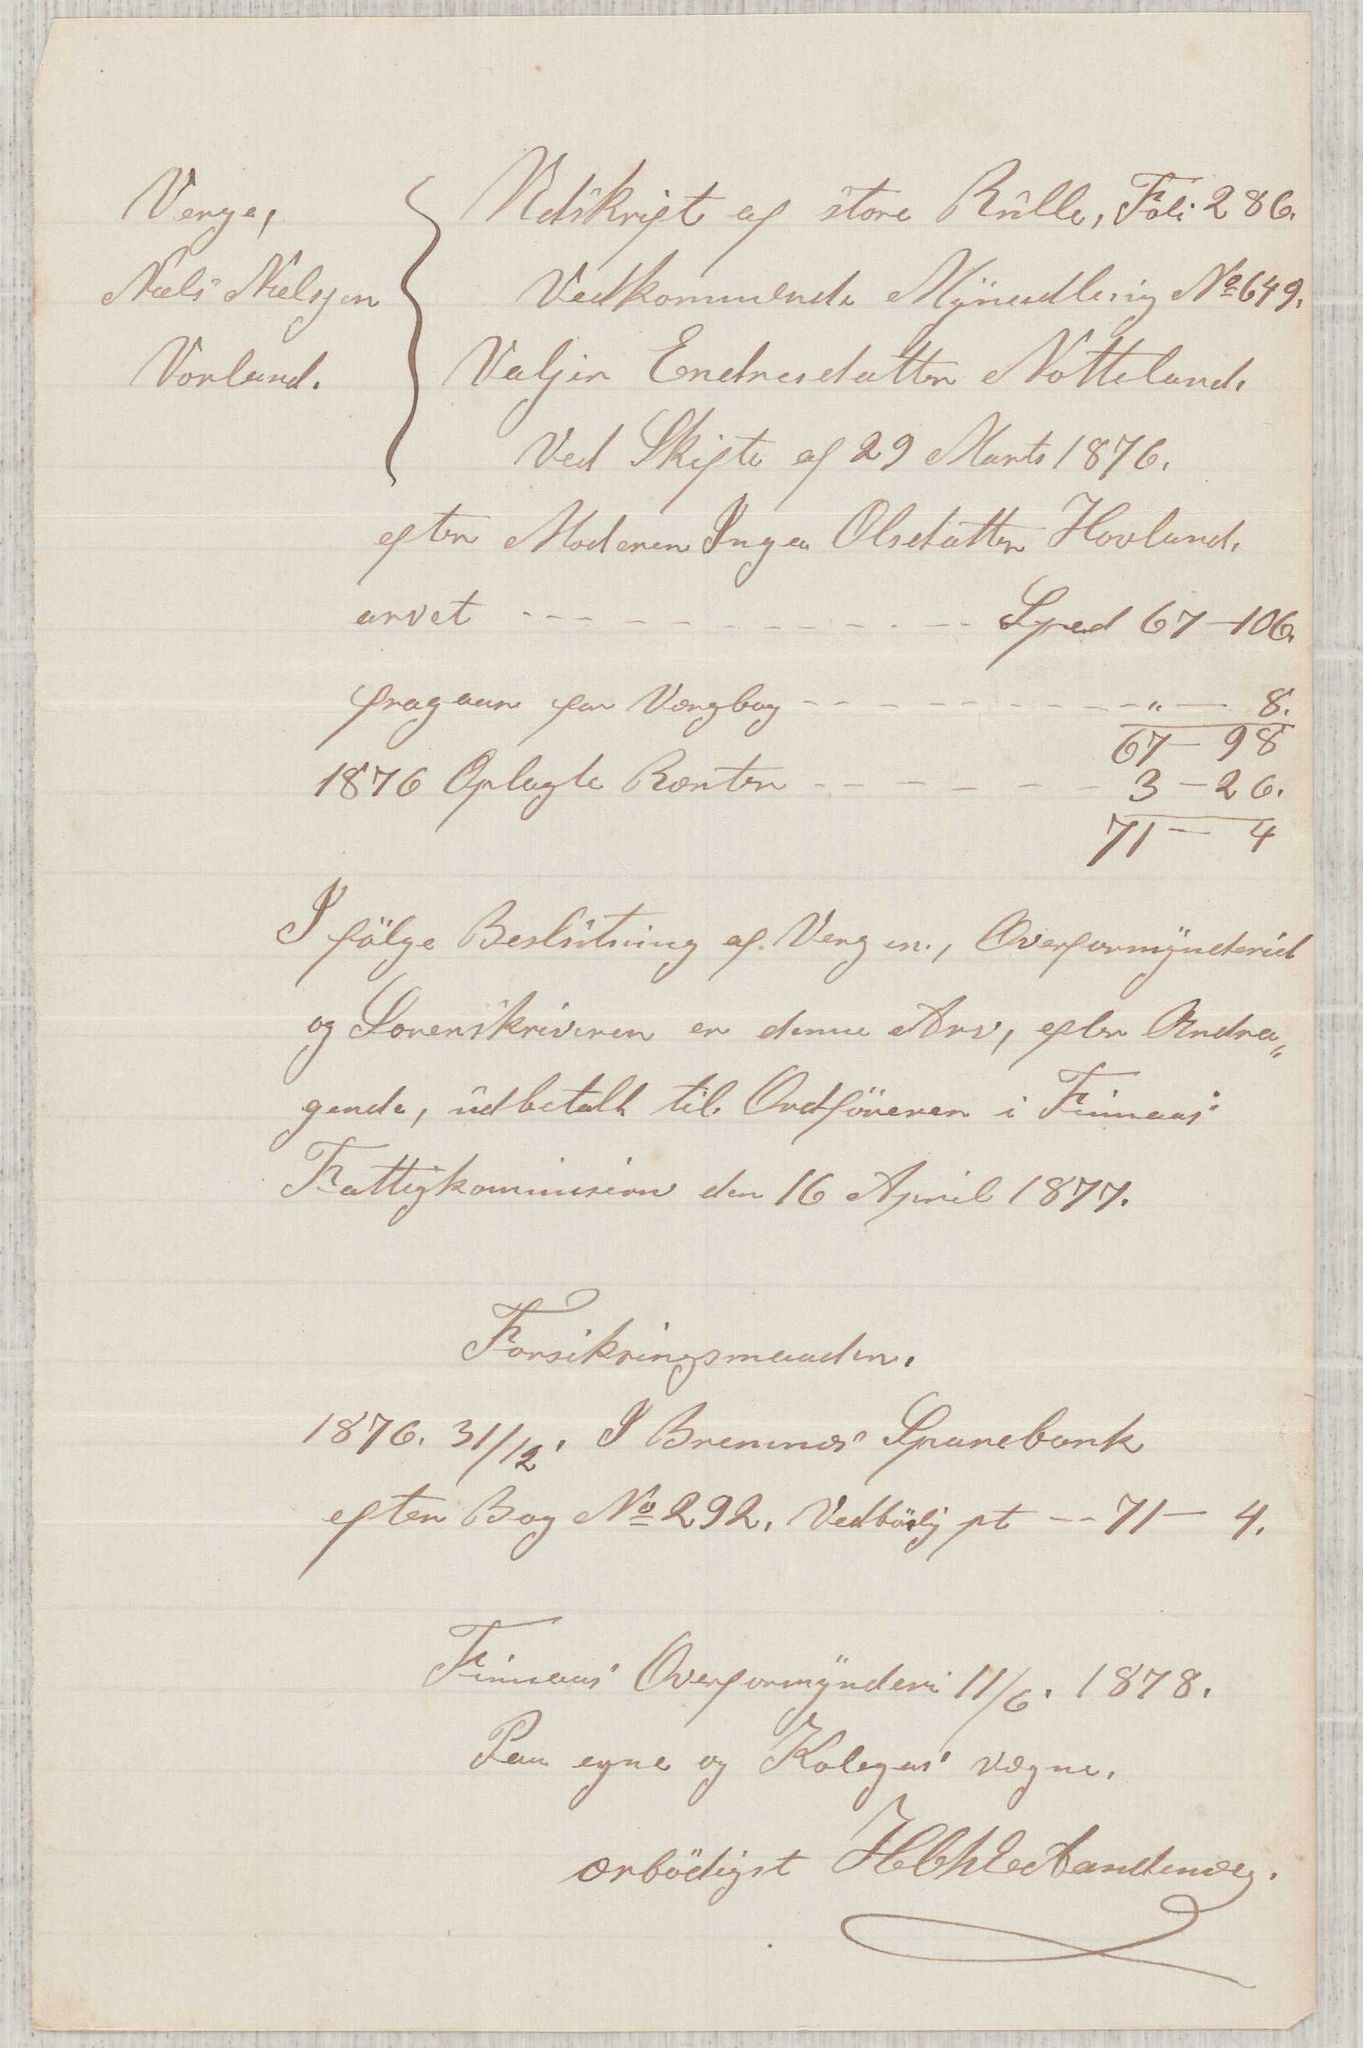 Verge,
Niels Nielssen
Vorland.
Udskrift af store Rúlle, Foli 286.
Vedkommende Mÿndling No 649.
Valjer Endresdatter Notteland.
Ved Skifte af 29 Marts 1876.
efter Moderen Inga Olsdatter Hovland.
arvet - - - - - - - - - - - Sped 67-106.
fragaar for Vergbog - - - - - - - - " - 8.
67-98
1876 Oplagte Renter - - - - - - 3-26.
71- 4
I fölge Beslútning af Vergen, Overformÿnderiet
og Sorenskriveren er denne Arv, efter Andra„
gende, údbetalt til Ordföreren i Finnaas
Fattigkommision den 16 April 1877.
Forsikringsmaaden.
1876. 31/12. I Bremnes Sparebank
efter Bog No 292. Vedböig pt -- 71- 4.
Finnaas Overformÿnderi 11/6. 1878.
Paa egne og Kolegas vegne.
ærbödigst